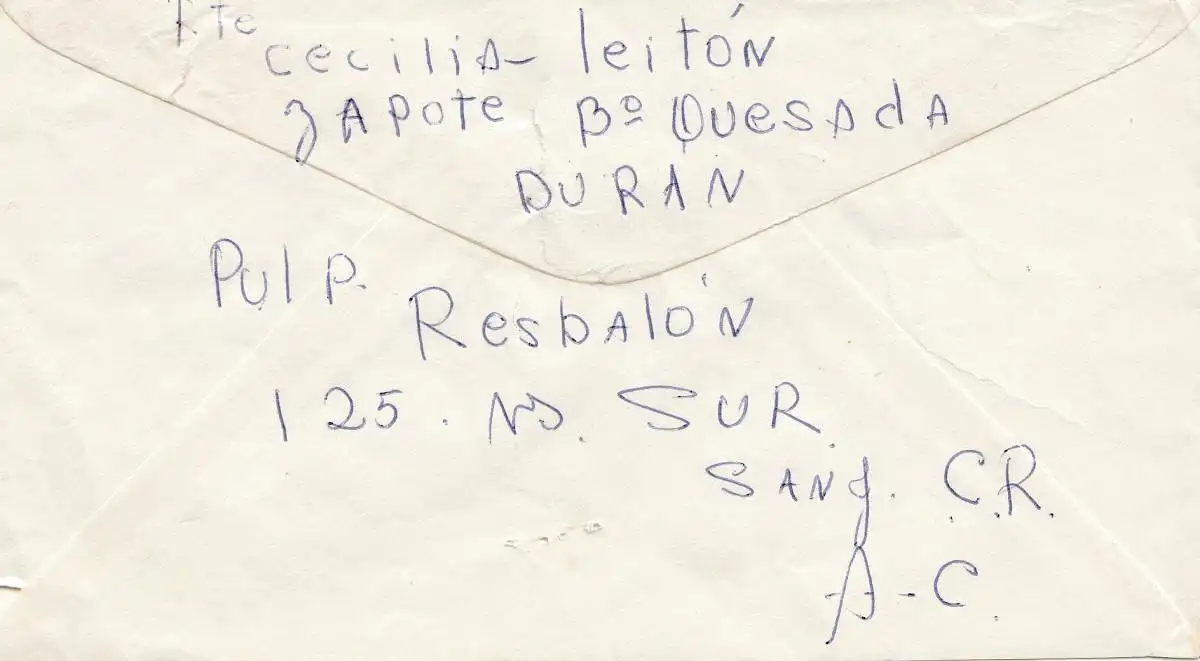 Rte
cecilia leitón
ZAPOTE Bº QUesAdA
DURAN
Pulp.
ResbAlÓN
125. Ms. SUR.
SANJ. C.R.
A-C.